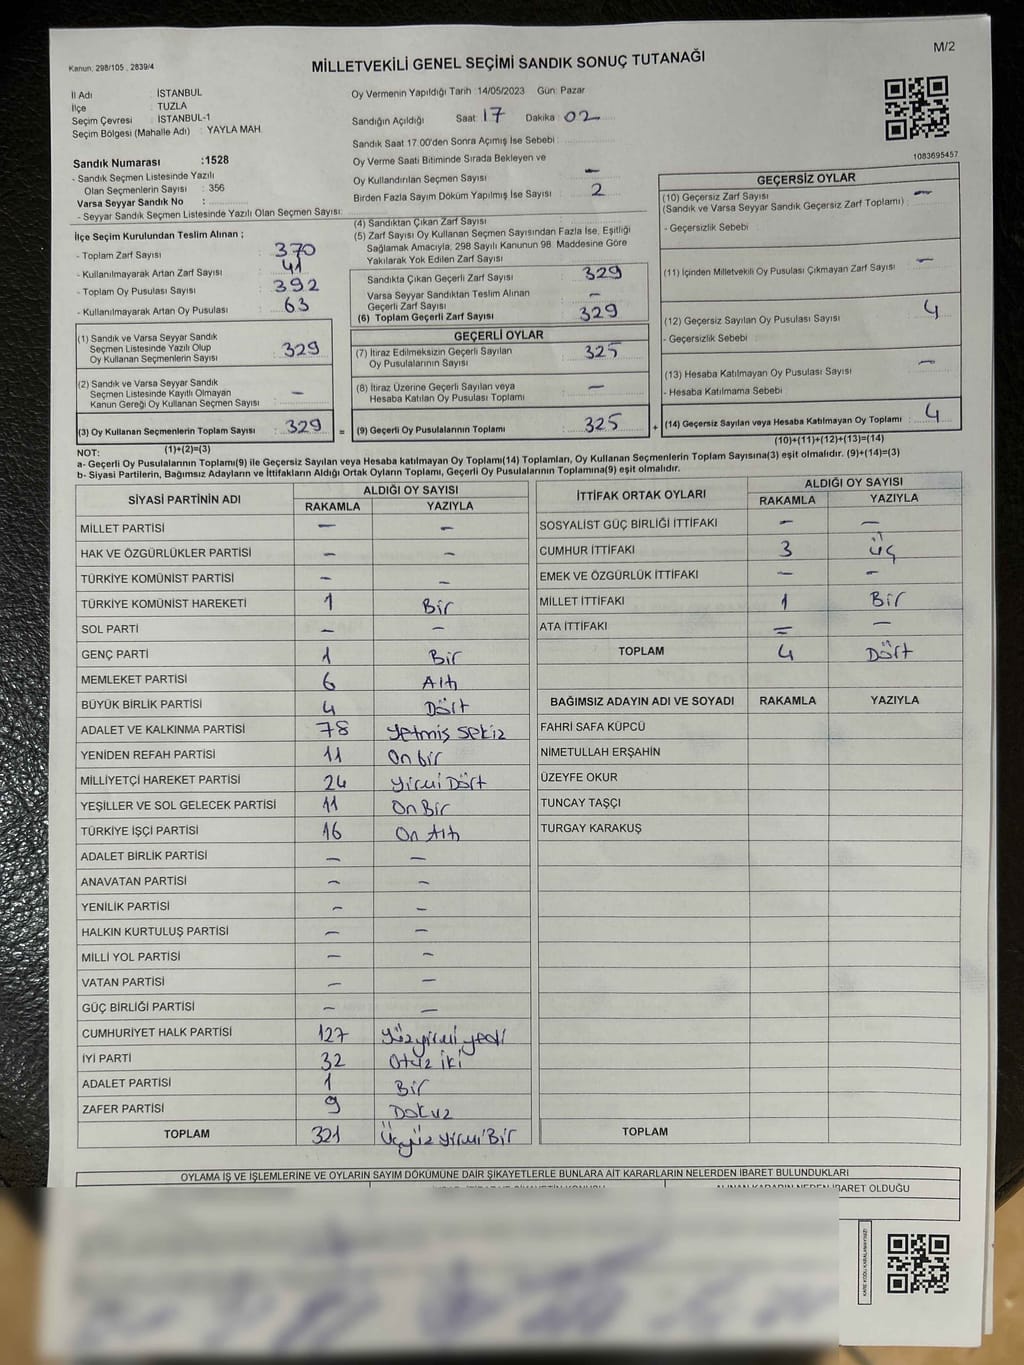 Kanun: 298/105 , 2839/4
M/2
MİLLETVEKİLİ GENEL SEÇİMİ SANDIK SONUÇ TUTANAĞI
İl Adı : İSTANBUL
İlçe : TUZLA
Seçim Çevresi : İSTANBUL-1
Seçim Bölgesi (Mahalle Adı) : YAYLA MAH.
Sandık Numarası :1528
- Sandık Seçmen Listesinde Yazılı
Olan Seçmenlerin Sayısı : 356
Varsa Seyyar Sandık No :
- Seyyar Sandık Seçmen Listesinde Yazılı Olan Seçmen Sayısı:
Oy Vermenin Yapıldığı Tarih : 14/05/2023 Gün: Pazar
Sandığın Açıldığı Saat: 17 Dakika : 02
Sandık Saat 17.00'den Sonra Açımış İse Sebebi :
Oy Verme Saati Bitiminde Sırada Bekleyen ve
Oy Kullandırılan Seçmen Sayısı : -
Birden Fazla Sayım Döküm Yapılmış İse Sayısı : 2
1083695457
İlçe Seçim Kurulundan Teslim Alınan ;
- Toplam Zarf Sayısı : 370
- Kullanılmayarak Artan Zarf Sayısı : 41
- Toplam Oy Pusulası Sayısı : 392
- Kullanılmayarak Artan Oy Pusulası : 63
(1) Sandık ve Varsa Seyyar Sandık
Seçmen Listesinde Yazılı Olup
Oy Kullanan Seçmenlerin Sayısı : 329
(2) Sandık ve Varsa Seyyar Sandık
Seçmen Listesinde Kayıtlı Olmayan
Kanun Gereği Oy Kullanan Seçmen Sayısı : -
(3) Oy Kullanan Seçmenlerin Toplam Sayısı : 329
(1)+(2)=(3)
(4) Sandıktan Çıkan Zarf Sayısı :
(5) Zarf Sayısı Oy Kullanan Seçmen Sayısından Fazla İse, Eşitliği
Sağlamak Amacıyla, 298 Sayılı Kanunun 98. Maddesine Göre
Yakılarak Yok Edilen Zarf Sayısı :
Sandıkta Çıkan Geçerli Zarf Sayısı : 329
Varsa Seyyar Sandıktan Teslim Alınan
Geçerli Zarf Sayısı : -
(6) Toplam Geçerli Zarf Sayısı : 329
GEÇERLİ OYLAR
(7) İtiraz Edilmeksizin Geçerli Sayılan
Oy Pusulalarının Sayısı : 325
(8) İtiraz Üzerine Geçerli Sayılan veya
Hesaba Katılan Oy Pusulası Toplamı : -
= (9) Geçerli Oy Pusulalarının Toplamı : 325
GEÇERSİZ OYLAR
(10) Geçersiz Zarf Sayısı -
(Sandık ve Varsa Seyyar Sandık Geçersiz Zarf Toplamı) :
- Geçersizlik Sebebi :
(11) İçinden Milletvekili Oy Pusulası Çıkmayan Zarf Sayısı : -
(12) Geçersiz Sayılan Oy Pusulası Sayısı : 4
- Geçersizlik Sebebi :
(13) Hesaba Katılmayan Oy Pusulası Sayısı : -
- Hesaba Katılmama Sebebi :
+ (14) Geçersiz Sayılan veya Hesaba Katılmayan Oy Toplamı : 4
(10)+(11)+(12)+(13)=(14)
NOT:
a- Geçerli Oy Pusulalarının Toplamı(9) ile Geçersiz Sayılan veya Hesaba katılmayan Oy Toplamı(14) Toplamları, Oy Kullanan Seçmenlerin Toplam Sayısına(3) eşit olmalıdır. (9)+(14)=(3)
b- Siyasi Partilerin, Bağımsız Adayların ve İttifakların Aldığı Ortak Oyların Toplamı, Geçerli Oy Pusulalarının Toplamına(9) eşit olmalıdır.
SİYASİ PARTİNİN ADI
ALDIĞI OY SAYISI
RAKAMLA YAZIYLA
MİLLET PARTİSİ - -
HAK VE ÖZGÜRLÜKLER PARTİSİ - -
TÜRKİYE KOMÜNİST PARTİSİ - -
TÜRKİYE KOMÜNİST HAREKETİ 1 Bir
SOL PARTİ - -
GENÇ PARTİ 1 Bir
MEMLEKET PARTİSİ 6 Altı
BÜYÜK BİRLİK PARTİSİ 4 Dört
ADALET VE KALKINMA PARTİSİ 78 Yetmiş sekiz
YENİDEN REFAH PARTİSİ 11 On bir
MİLLİYETÇİ HAREKET PARTİSİ 24 Yirmi Dört
YEŞİLLER VE SOL GELECEK PARTİSİ 11 On Bir
TÜRKİYE İŞÇİ PARTİSİ 16 On Altı
ADALET BİRLİK PARTİSİ - -
ANAVATAN PARTİSİ - -
YENİLİK PARTİSİ - -
HALKIN KURTULUŞ PARTİSİ - -
MİLLİ YOL PARTİSİ - -
VATAN PARTİSİ - -
GÜÇ BİRLİĞİ PARTİSİ - -
CUMHURİYET HALK PARTİSİ 127 Yüzyirmi yedi
İYİ PARTİ 32 Otuz iki
ADALET PARTİSİ 1 Bir
ZAFER PARTİSİ 9 Dokuz
TOPLAM 321 Üçyüz Yirmi Bir
İTTİFAK ORTAK OYLARI
ALDIĞI OY SAYISI
RAKAMLA YAZIYLA
SOSYALİST GÜÇ BİRLİĞİ İTTİFAKI - -
CUMHUR İTTİFAKI 3 üç
EMEK VE ÖZGÜRLÜK İTTİFAKI - -
MİLLET İTTİFAKI 1 Bir
ATA İTTİFAKI = -
TOPLAM 4 Dört
BAĞIMSIZ ADAYIN ADI VE SOYADI RAKAMLA YAZIYLA
FAHRİ SAFA KÜPCÜ
NİMETULLAH ERŞAHİN
ÜZEYFE OKUR
TUNCAY TAŞÇI
TURGAY KARAKUŞ
TOPLAM
OYLAMA İŞ VE İŞLEMLERİNE VE OYLARIN SAYIM DÖKÜMÜNE DAİR ŞİKAYETLERLE BUNLARA AİT KARARLARIN NELERDEN İBARET BULUNDUKLARI
ALINAN KARARIN NEDEN İBARET OLDUĞU
KARE KODU KARALAMAYINIZ!